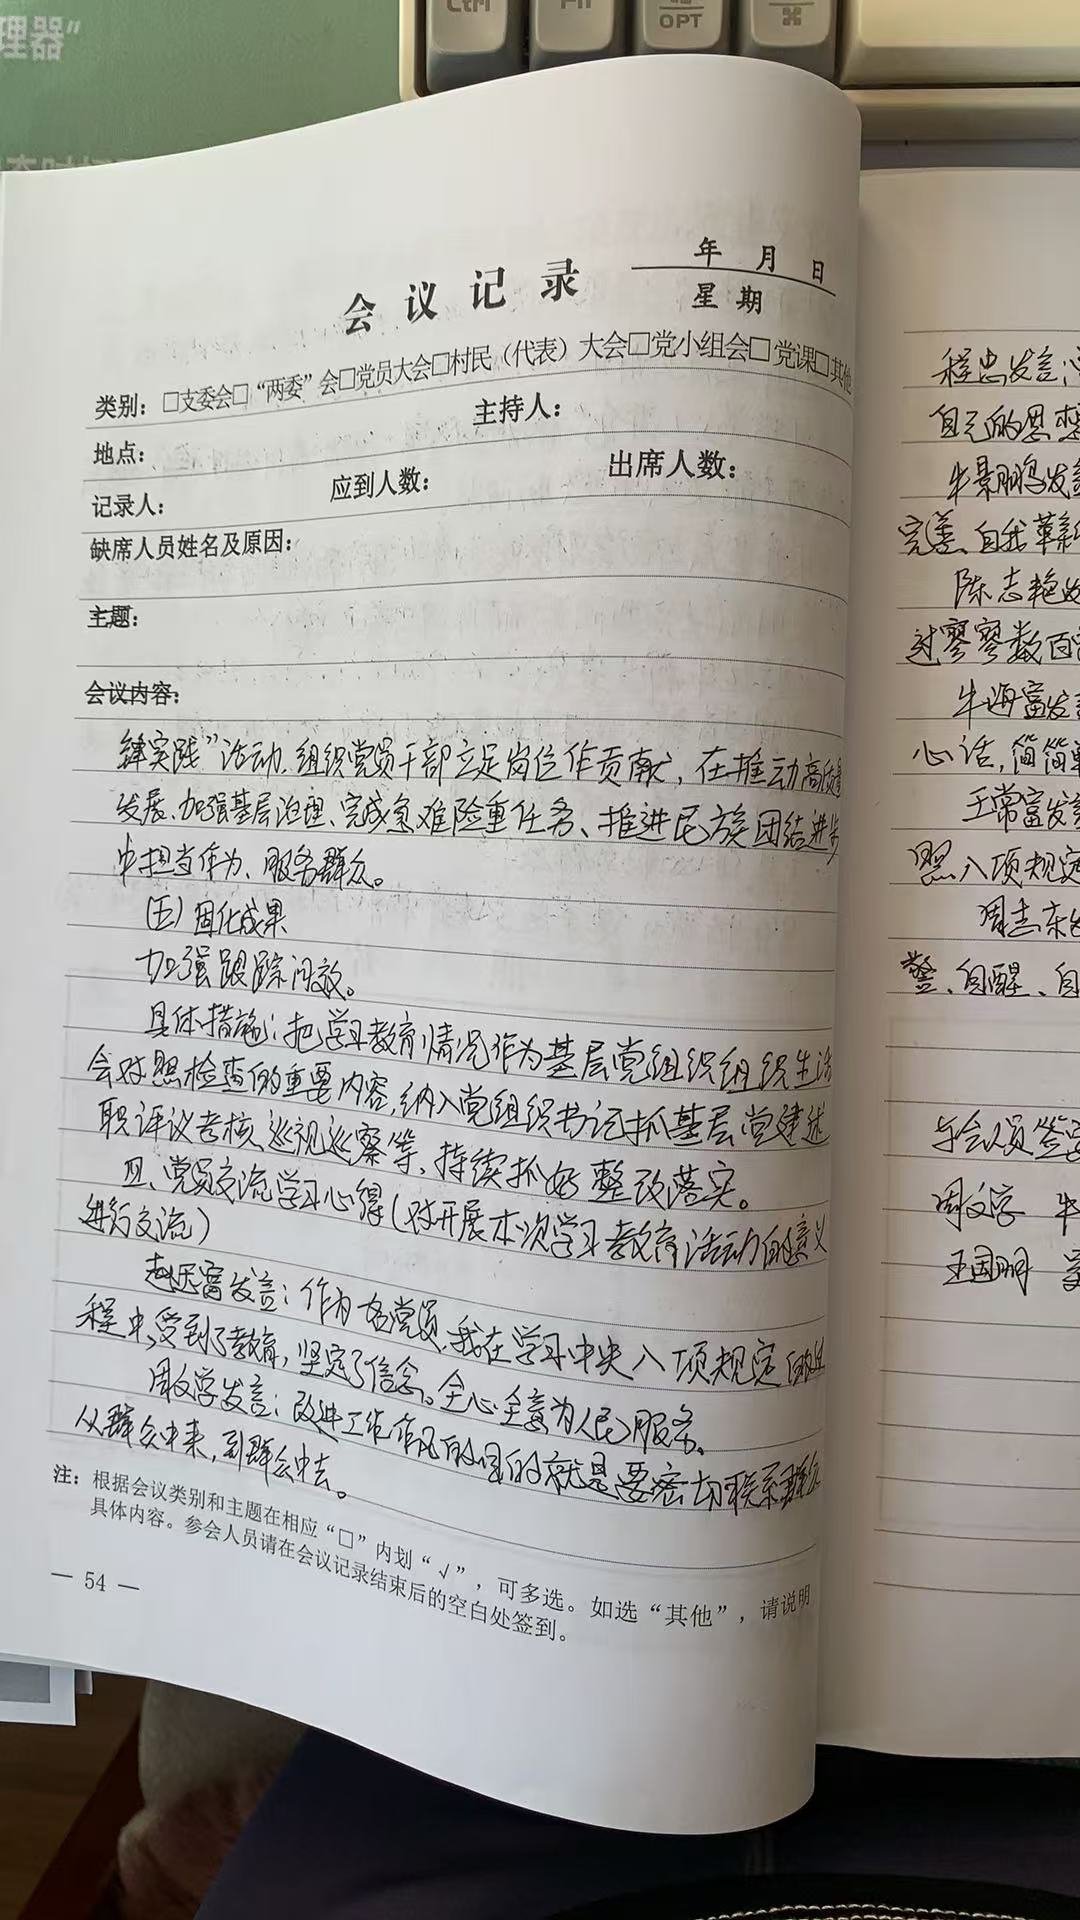 理器”
Ctrl
Fn
OPT
⌘
会议记录
年 月 日
星期
类别：□支委会□“两委”会□党员大会□村民（代表）大会□党小组会□党课□其他
地点：
主持人：
记录人：
应到人数：
出席人数：
缺席人员姓名及原因：
主题：
会议内容：
肆实践”活动.组织党员干部立足岗位作贡献，在推动高质量
发展、加强基层治理、完成急难险重任务、推进民族团结进步
中担当作为、服务群众。
(五)固化成果
加强跟踪问效。
具体措施：把学习教育情况作为基层党组织组织生活
会对照检查的重要内容，纳入党组织书记抓基层党建述
职评议考核、巡视巡察等、持续抓好整改落实。
四、党员交流学习心得(对开展本次学习教育活动的意义
进行交流)
发言：作为一名党员，我在学习中央八项规定的过
程中，受到了教育，坚定了信念。全心全意为人民服务。
周文学发言：改进工作作风的目的就是要密切联系群众
从群众中来，到群众中去。
注：根据会议类别和主题在相应“□”内划“√”，可多选。如选“其他”，请说明
具体内容。参会人员请在会议记录结束后的空白处签到。
— 54 —
程忠发言：
自己的思想
牛景鹏发
完善、自我革新
陈志艳发
过寥寥数百
牛海富发言
心话，简简单
王常富发
照八项规定
周志东
警、自醒、自
与会人员签
周文学 牛
王国明